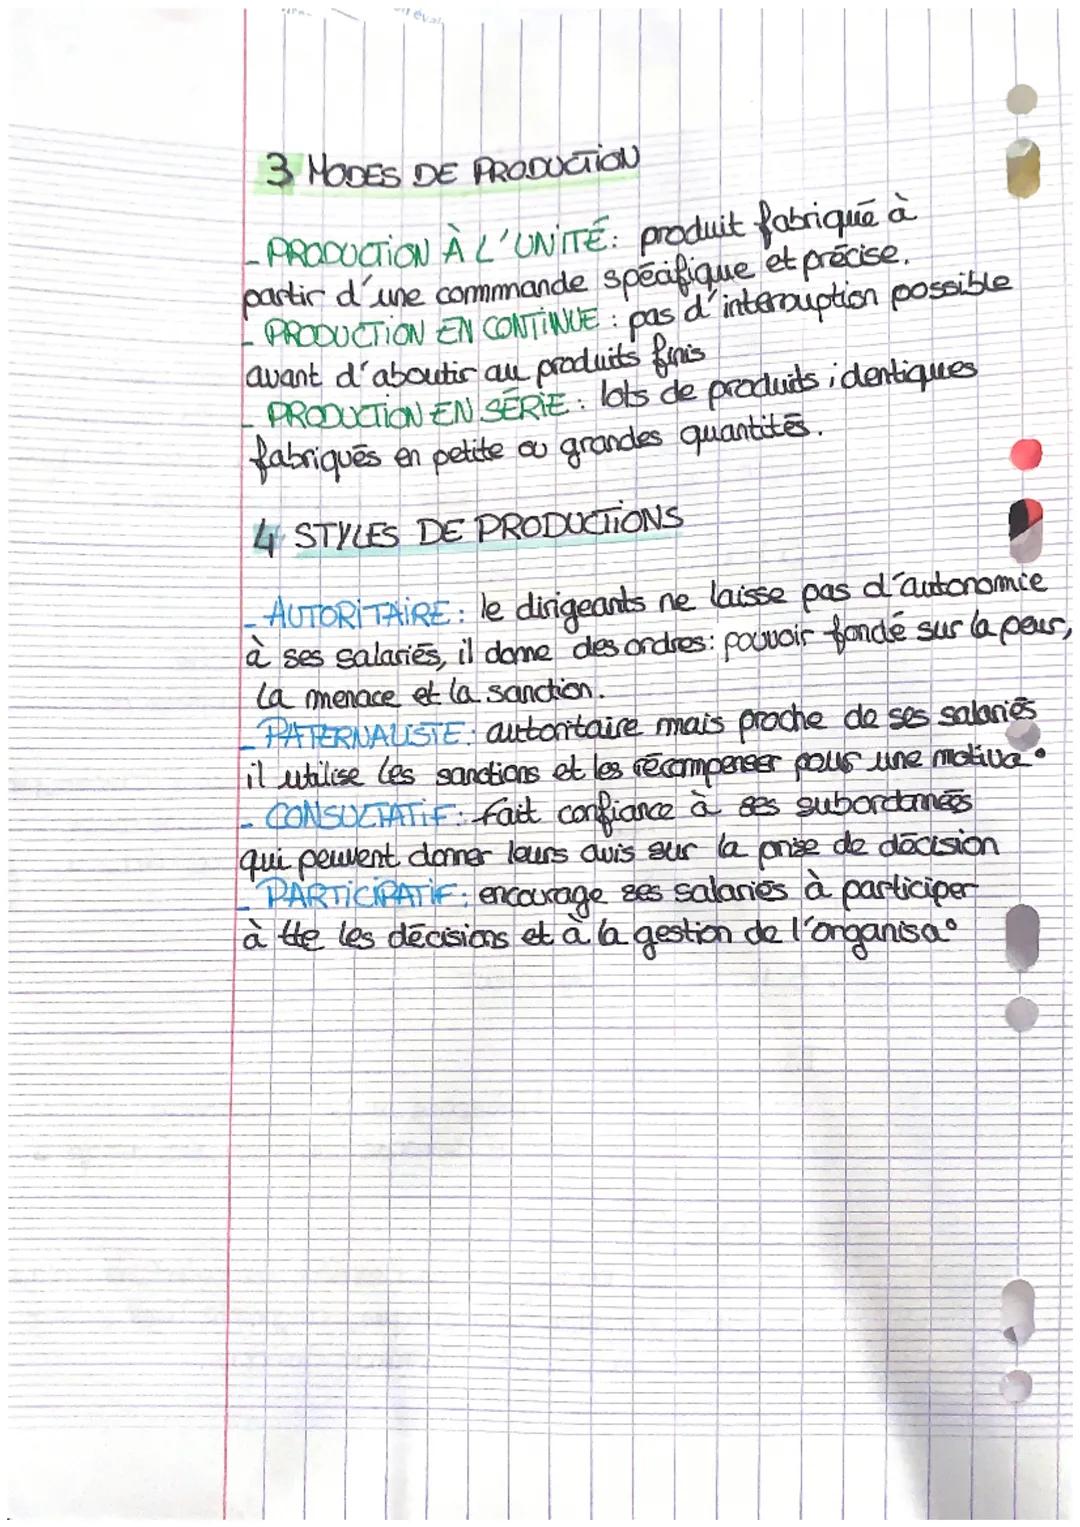 3 MODES DE PRODUCTION
- PRODUCTION À L'UNITÉ : produit fabriqué à
partir d'une commande spécifique et précise.
- PRODUCTION EN CONTINUE : pas d'interruption possible
avant d'aboutir au produits finis
- PRODUCTION EN SÉRIE : lots de produits identiques
fabriqués en petite ou grandes quantités.
4 STYLES DE PRODUCTIONS
- AUTORITAIRE : le dirigeants ne laisse pas d'autonomie
à ses salariés, il donne des ordres : pouvoir fondé sur la peur,
la menace et la sanction.
- PATERNALISTE : autoritaire mais proche de ses salariés
il utilise les sanctions et les récompenser pour une motiva°
- CONSULTATIF : fait confiance à ses subordonnés
qui peuvent donner leurs avis sur la prise de décision
- PARTICIPATIF : encourage ses salariés à participer
à tte les décisions et à la gestion de l'organisa°